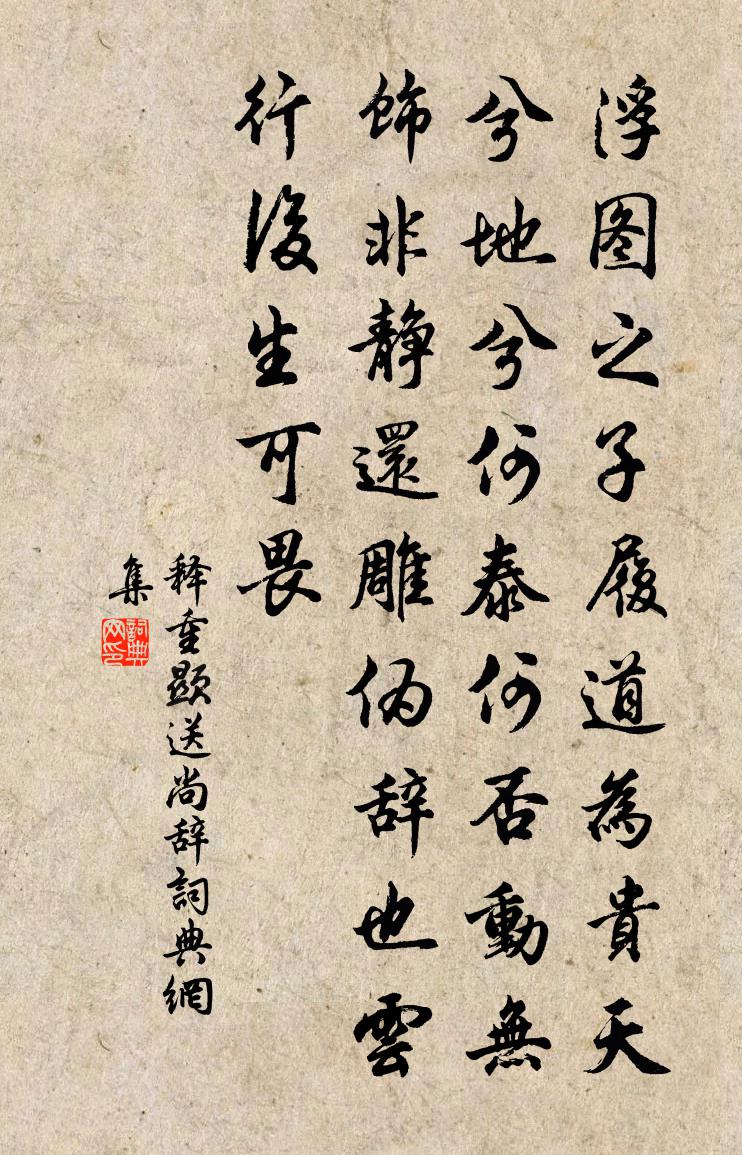 浮图之子履道為貴天
兮地兮何泰何否動無
飾非静還雕伪辞也雲
行後生可畏
释重顯送尚辞詞典網
集
詞典網印